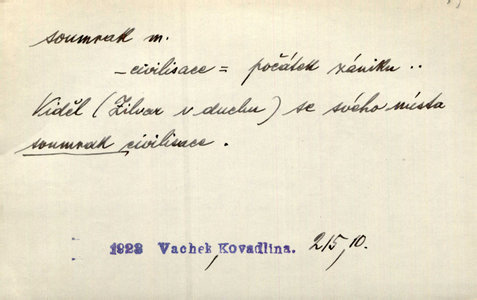 soumrak m.
– civilisace = počátek zániku ..
Viděl (Zilvar v duchu) se svého místa
soumrak civilisace.
1923 Vachek, Kovadlina. 215, 10.